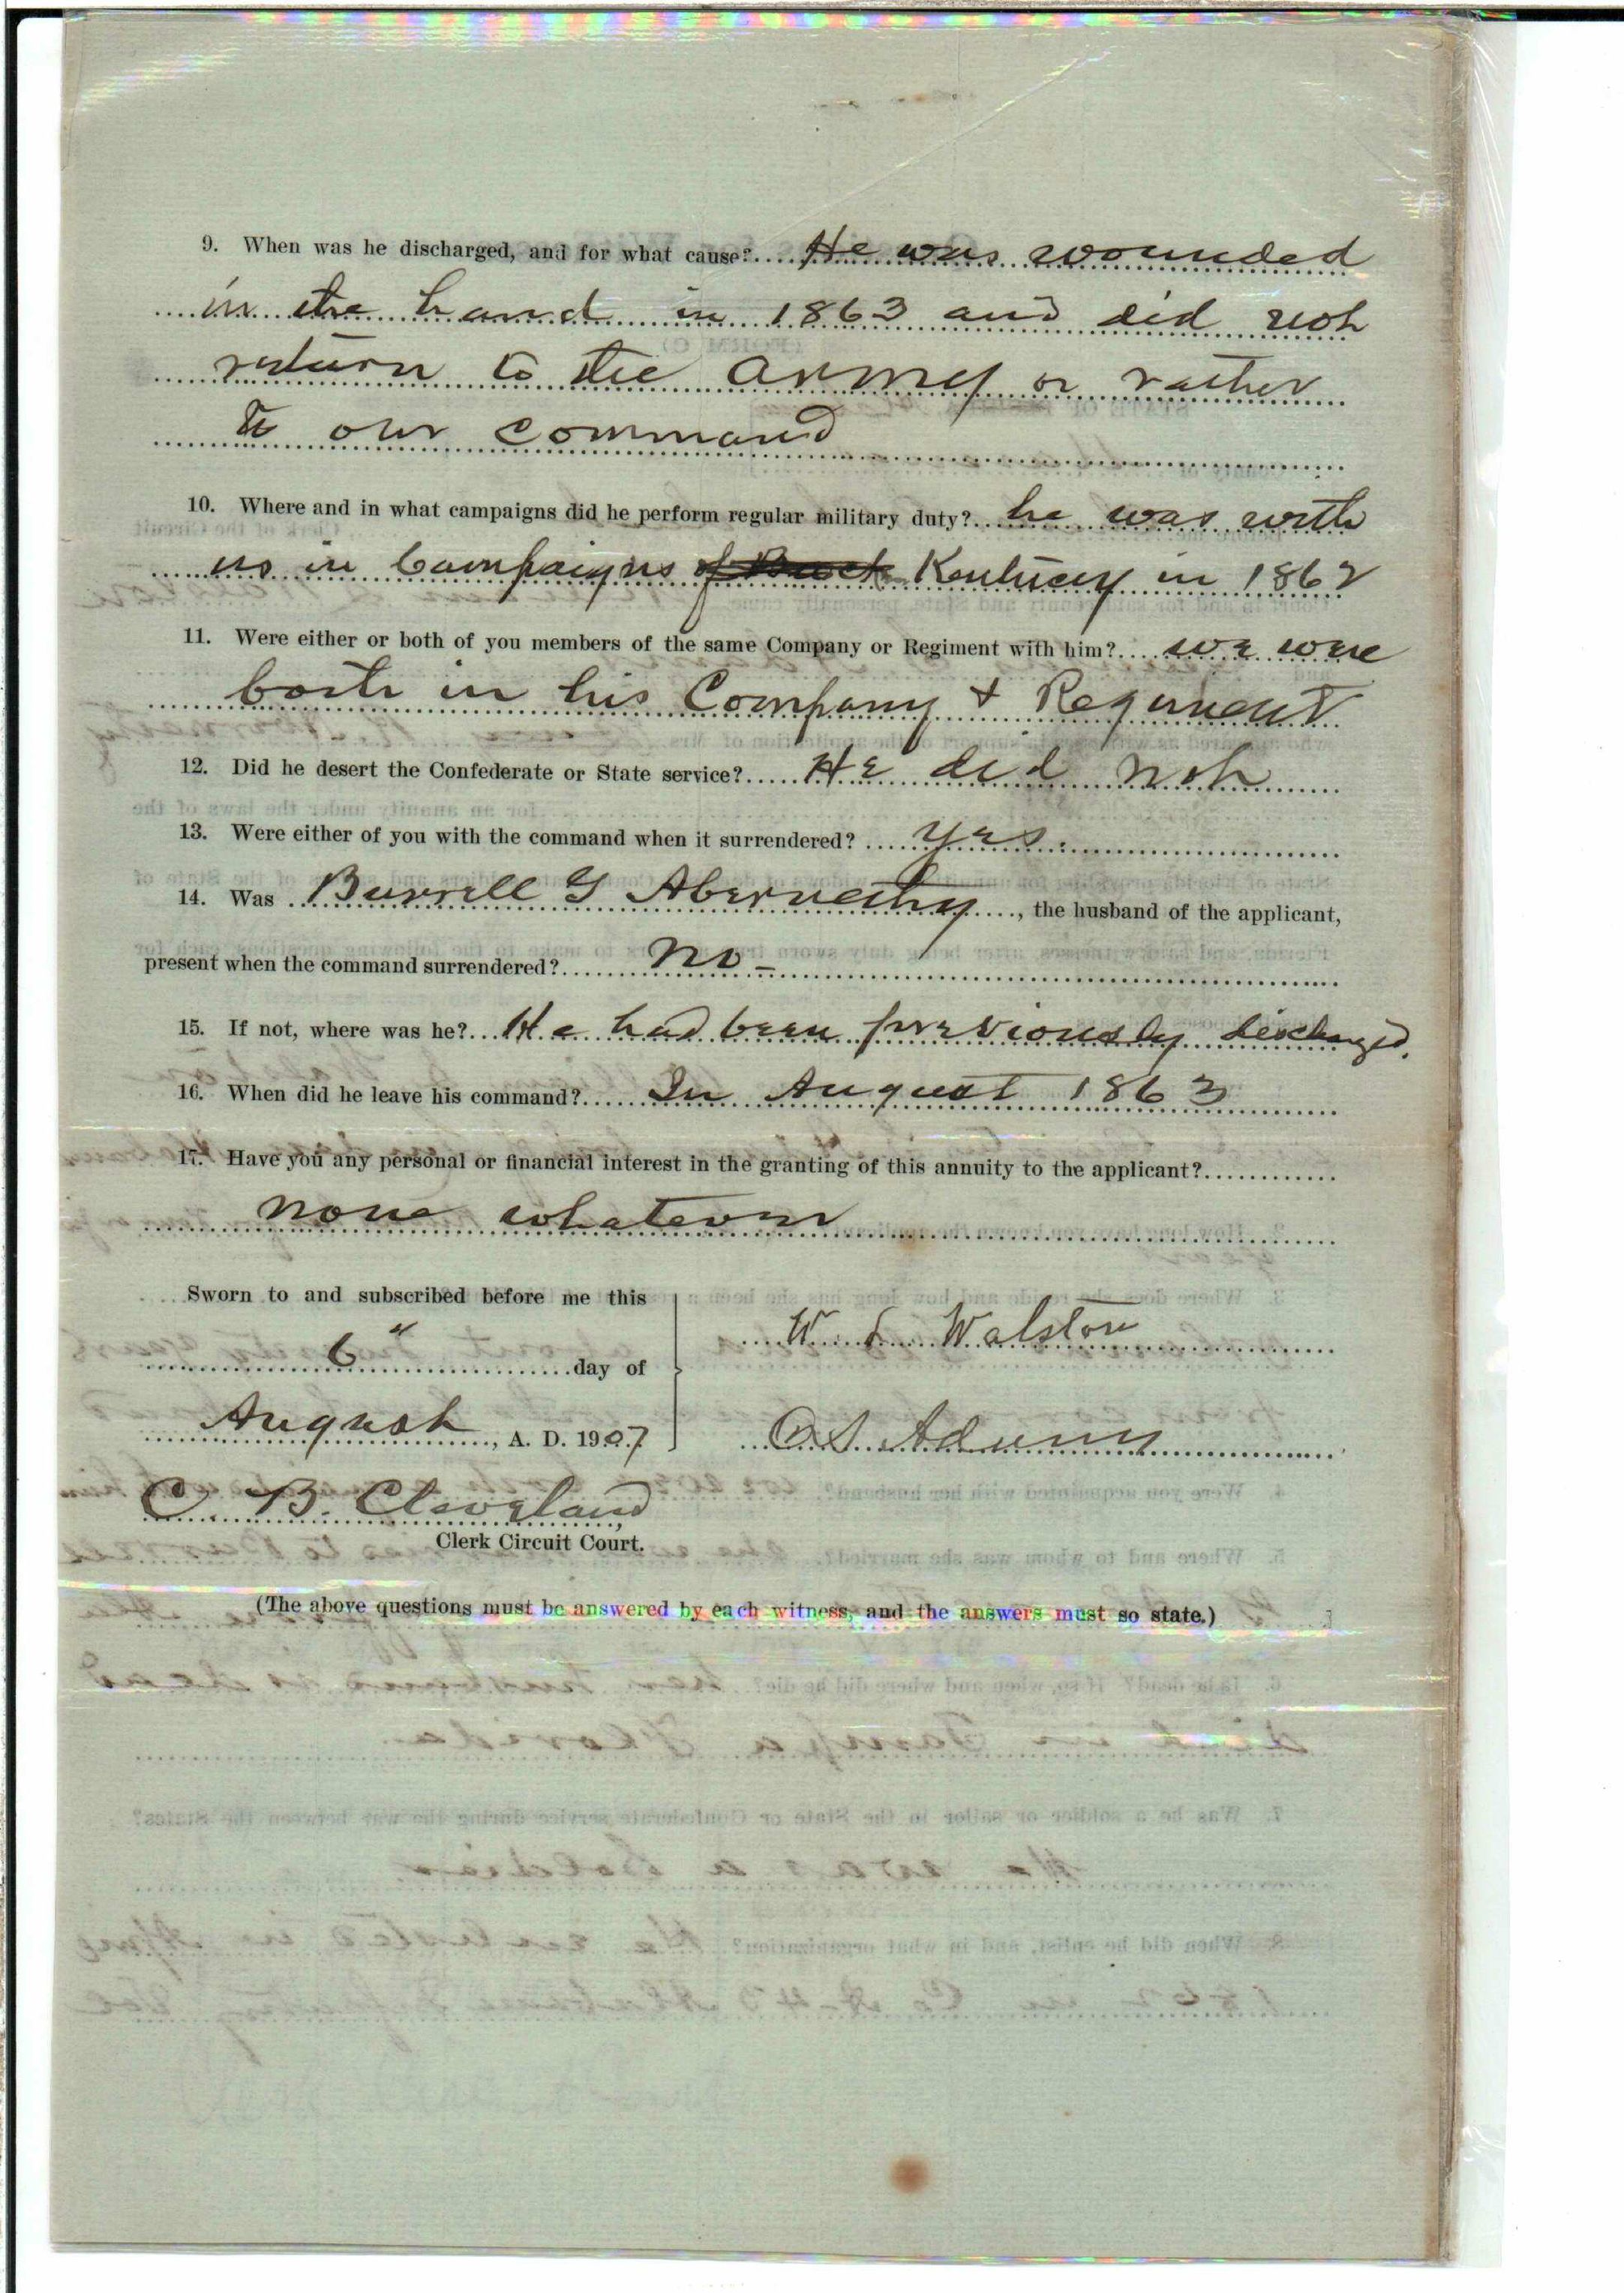 9. When was he discharged, and for what cause? He was wounded
in the hand in 1863 and did not
return to the army or rather
to our command
10. Where and in what campaigns did he perform regular military duty? he was with
us in Campaigns of Kentucky in 1862
11. Were either or both of you members of the same Company or Regiment with him? we were
both in his Company & Regiment
12. Did he desert the Confederate or State service? He did not
13. Were either of you with the command when it surrendered? yes.
14. Was Burrell G Abernethy, the husband of the applicant,
present when the command surrendered? No -
15. If not, where was he? He had been previously discharged.
16. When did he leave his command? In August 1863
17. Have you any personal or financial interest in the granting of this annuity to the applicant?
none whatever
Sworn to and subscribed before me this
6" day of
August, A. D. 1907
W L Walston
O S Adams
C. B. Cleveland,
Clerk Circuit Court.
(The above questions must be answered by each witness, and the answers must so state.)